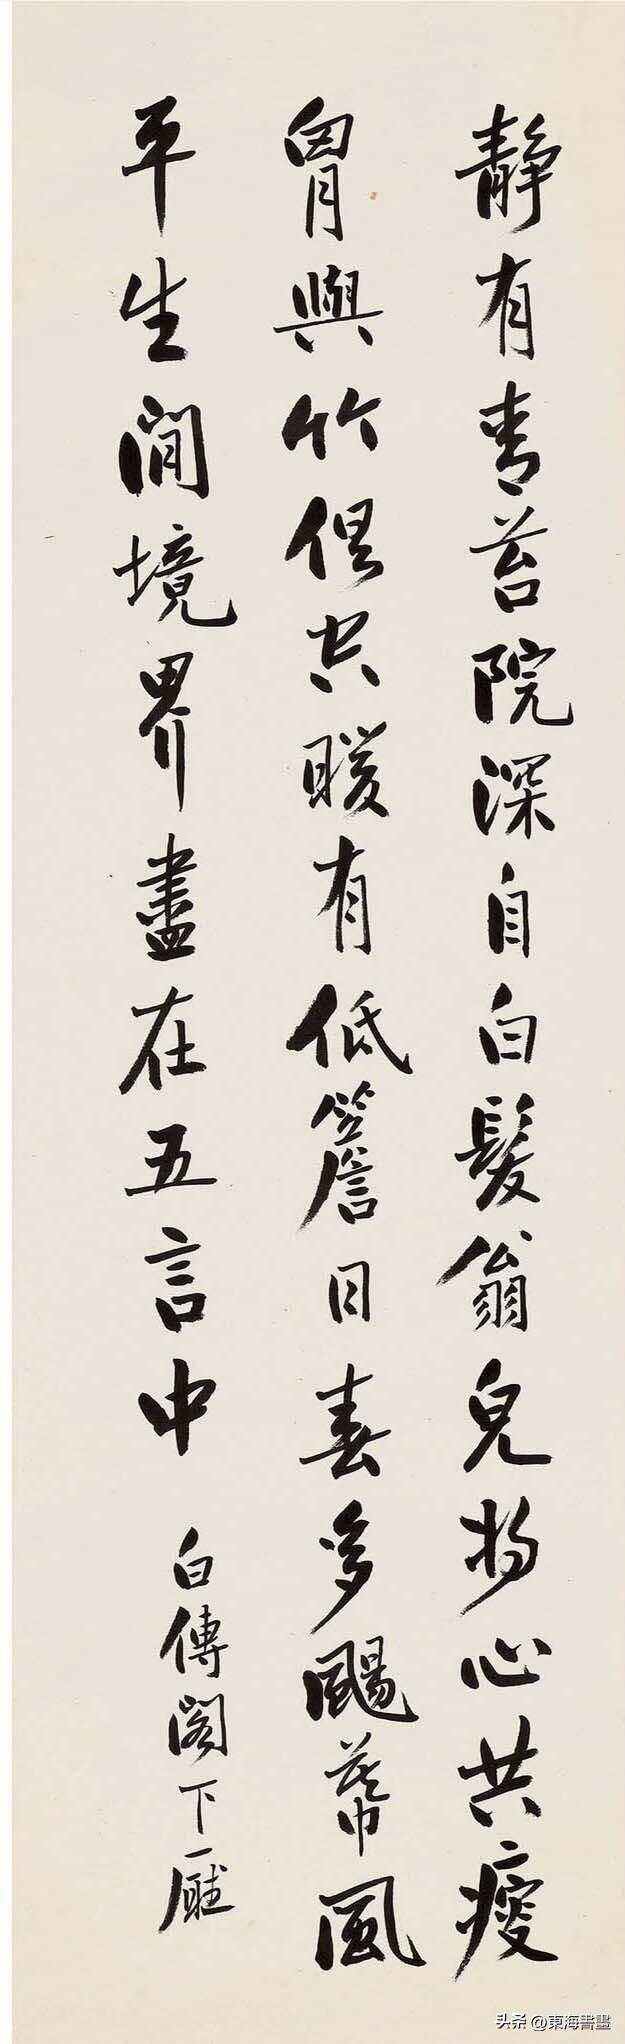 靜有青苔院深自白髮翁皃將心共瘦
胷與竹俱空暖有低簷日春多颺幕風
平生閒境界盡在五言中
白傅閣下廳
头条 @東海書畫